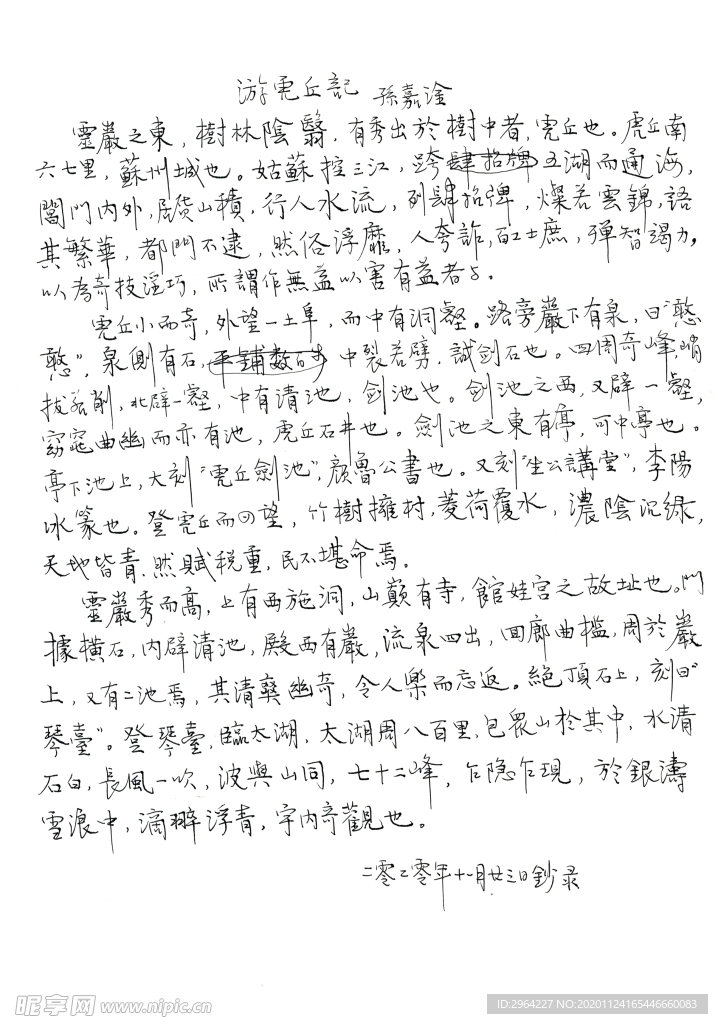 游虎丘記 孫嘉淦
靈巖之東，樹林陰翳，有秀出於樹中者，虎丘也。虎丘南
六七里，蘇州城也。姑蘇控三江，跨肆招牌五湖而通海，
閶門內外，居貨山積，行人水流，列肆招牌，燦若雲錦，語
其繁華，都門不逮，然俗浮靡，人夸詐，百工士庶，殫智竭力，
以為奇技淫巧，所謂作無益以害有益者与。
虎丘小而奇，外望一土阜，而中有洞壑。路旁巖下有泉，曰“憨
憨”，泉側有石，平鋪數百步中裂若劈，試劍石也。四周奇峰，峭
拔若削，北辟一壑，中有清池，劍池也。劍池之西，又辟一壑，
窈窕曲幽而亦有池，虎丘石井也。劍池之東有亭，可中亭也。
亭下池上，大刻“虎丘劍池”，顏魯公書也。又刻“生公講堂”，李陽
冰篆也。登虎丘而四望，竹樹擁村，菱荷覆水，濃陰沉綠，
天地皆青，然賦稅重，民不堪命焉。
靈巖秀而高，上有西施洞，山巔有寺，館娃宮之故址也。門
據橫石，內辟清池，殿西有巖，流泉四出，回廊曲檻，周於巖
上，又有二池焉，其清爽幽奇，令人樂而忘返。絕頂石上，刻曰“
琴臺”。登琴臺，臨太湖，太湖周八百里，包衆山於其中，水清
石白，長風一吹，波與山同，七十二峰，乍隐乍現，於銀濤
雪浪中，滴翠浮青，宇內奇觀也。
二零二零年十一月廿三日鈔录
昵享网 www.nipic.cn
ID:2964227 NO:20201124165446660083